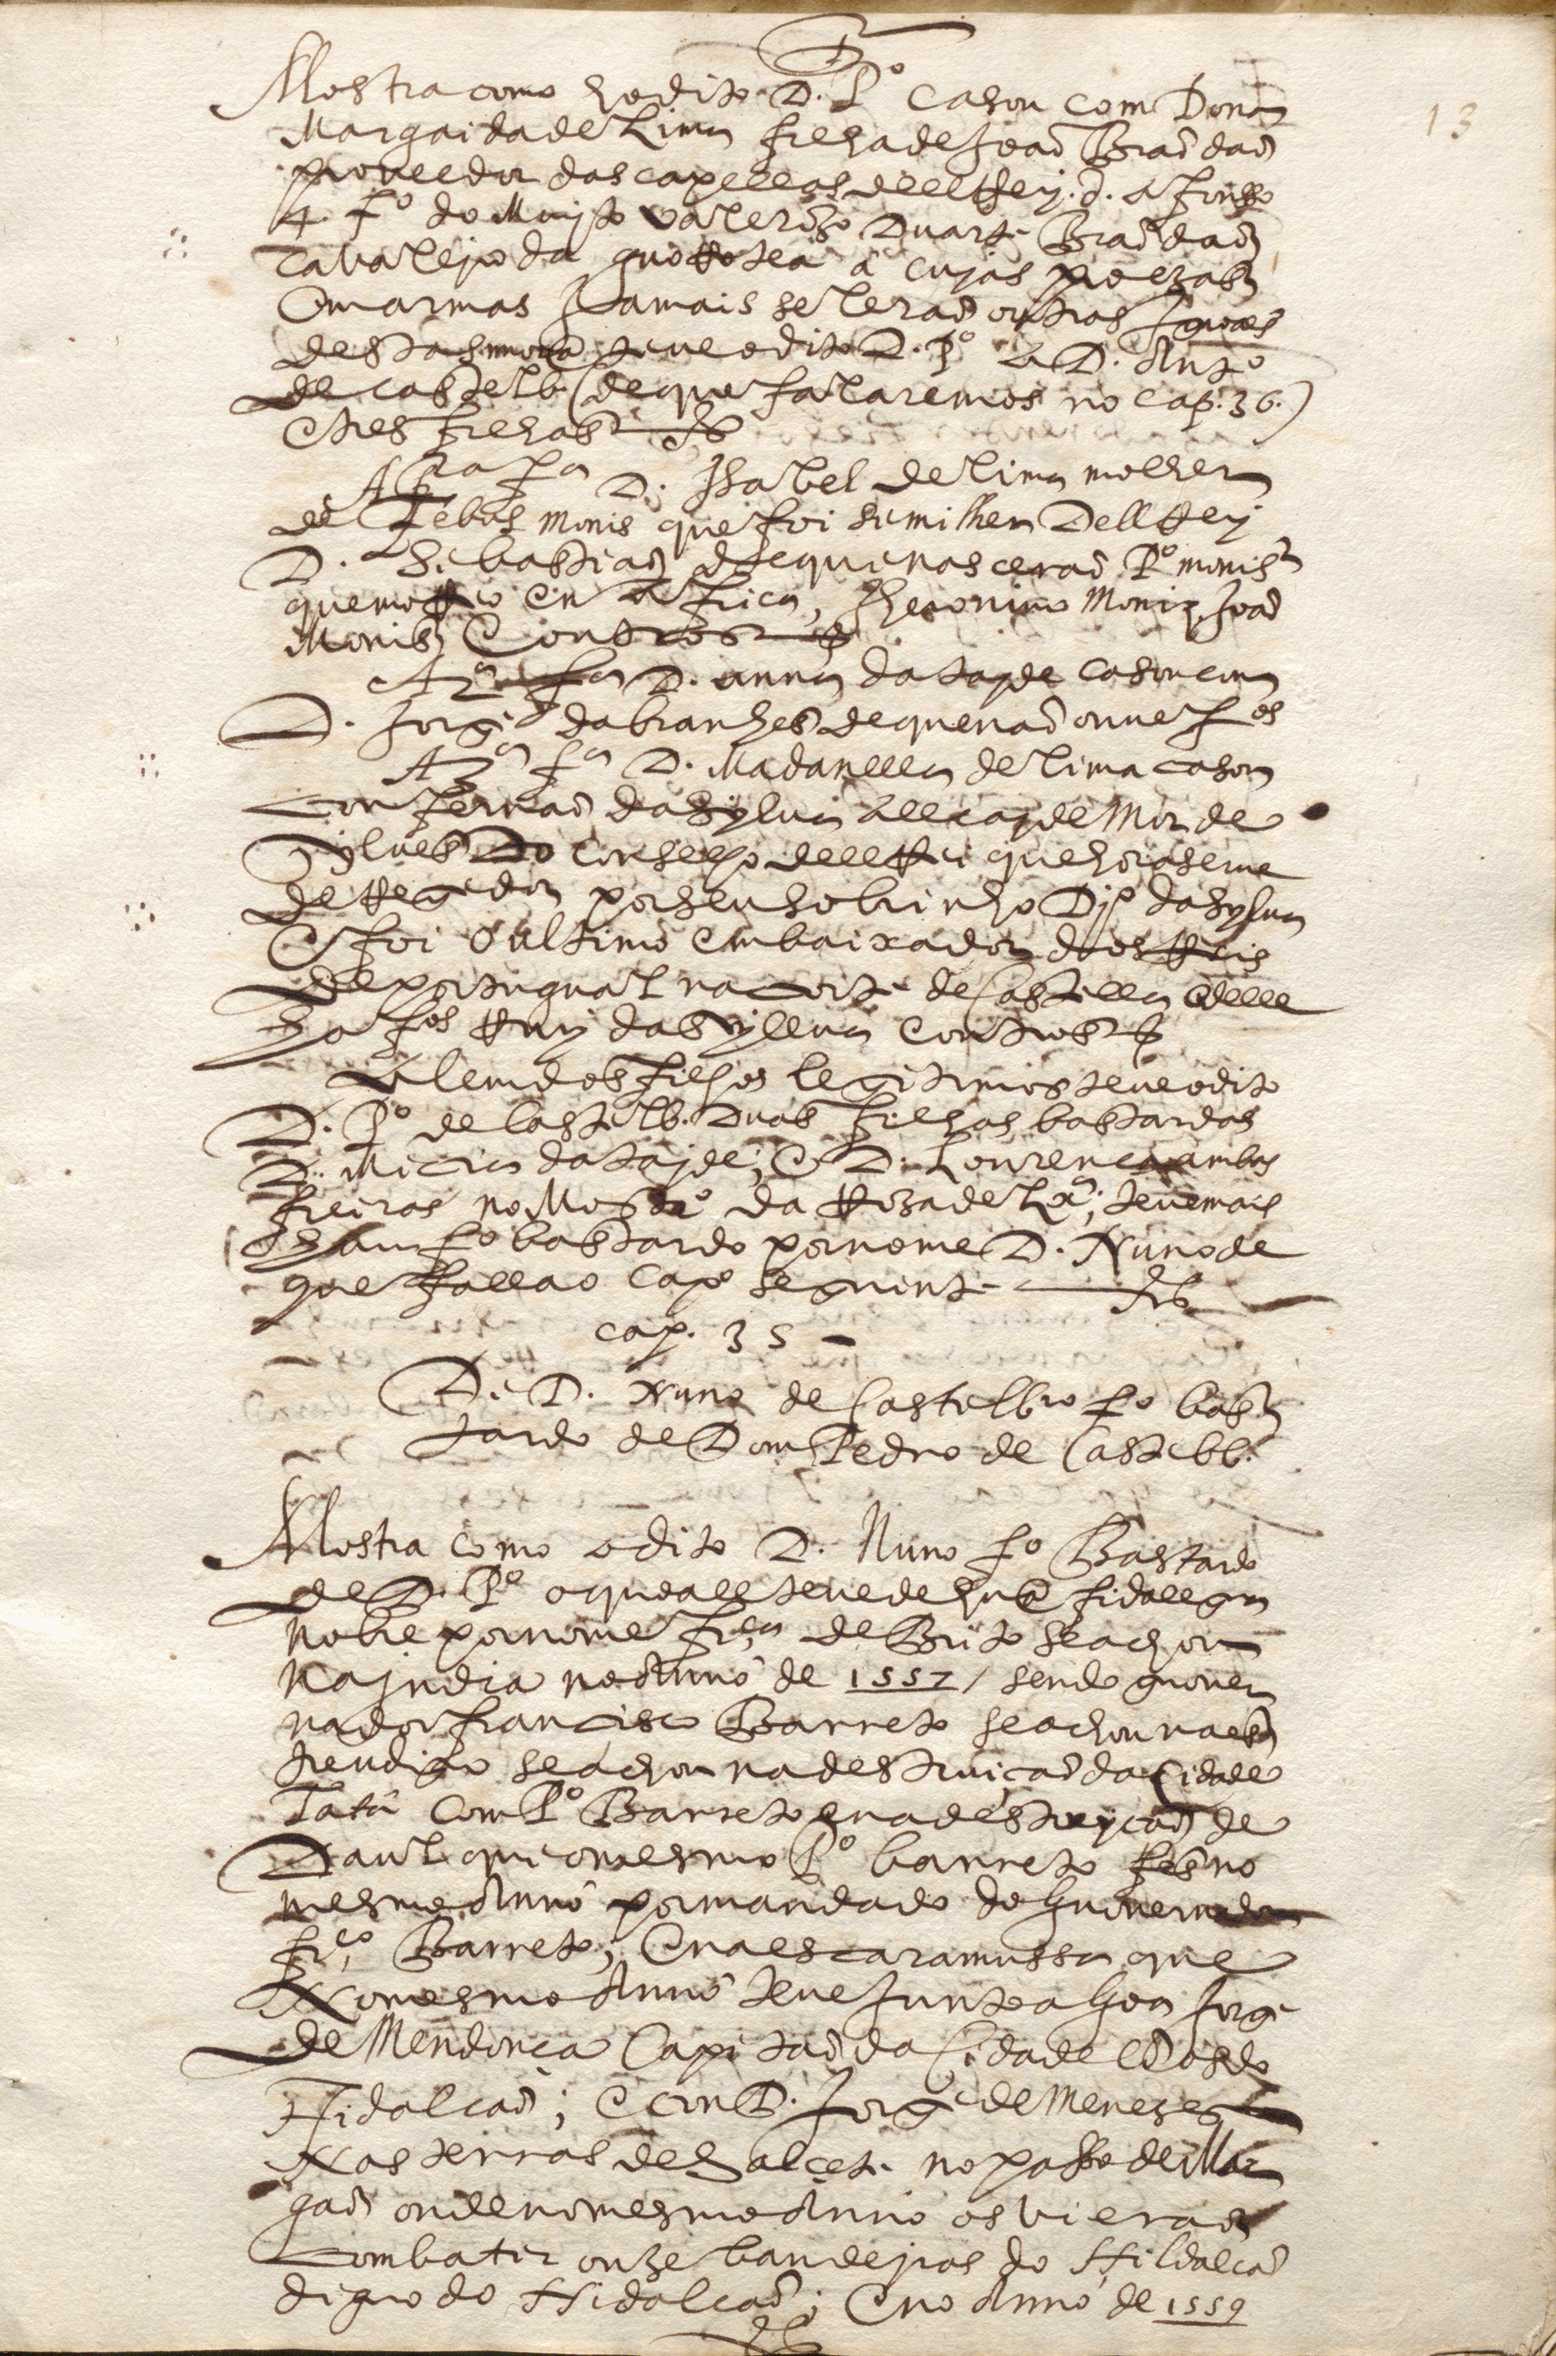 13
Mostra como ho dito D. Pº casou com Dona
Margaida de Lima filha de Joaõ Brandaõ
proueedor das capellas dell Rey. d. Afonsso
4. fº do Muyto valerozo Duarte Brandaõ
Caualejro da guarrotea a cujas proezas
em armas Jamais se leraõ outras Iguoaes
desta snnora teue o dito D. Pº a D. Antº
de castelb. (de que falaremos no cap. 36.)
E tres filhas
A pª fª D. Isabel de lima molher
de Febus monis que foi sumilher Dell Rey
D. Sebastiaõ de que nasceraõ Pº monis
que morreo em Africa, Iheronimo Moniz, Joaõ
Monis E outros
A 2ª fª D. anna datayde casou com
D. Jorge dabranches de que naõ ouue fos
A 3ª fª D. Madanella de lima casou
con fernaõ da Syluia allcayde Mor de
Sylues Do Conselho dell Rei que hora serue
de Regedor por seu sobrinho Djº da Sylua
E foi o ultimo embaixador dos Reis
de portugual na corte de Castella E delle
ha fos Ruy da Syllua E outros
Alem dos filhos legitimos teue o dito
D. Pº de Castelb. Duas filhas bastardas
D. Micia dataide, E D. Lourenca ambas
freiras no Mostrº da Roza de Lxª; teue mais
hum fº bastardo por nome D. Nuno de
que falla o Capº seguinte
cap. 35
De D. Nuno de Castelbrº fº bas
tardo de Dom Pedro de Castelb.
Mostra como o dito D. Nuno fº Bastardo
de D. Pº o quoall teue de huã fidallgua
nobre por nome frca de Brito se achou
na jndia no Anno de 1557 / sendo guouer
nador francisco Barreto se achou na
se achou na destruiçaõ da Cidade
Tatâ com Pº Barreto E na destruyçaõ de
Daul que o mesmo Pº barreto fes no
mesmo Anno por mandado do Guouernador
frco Barreto; E na escaramussa que
No mesmo Anno teue Junto a Goa Jorge
de Mendonca Capitaõ da Cidade E os do
Hidalcaõ; E com D. Jorge de Menezes
Nas terras de Salcete no passo de Mar
gaõ onde no mesmo Anno os vieraõ
combater onze bandejras do Hildalcaõ
digo do Hidalcaõ; E no Anno de 1559